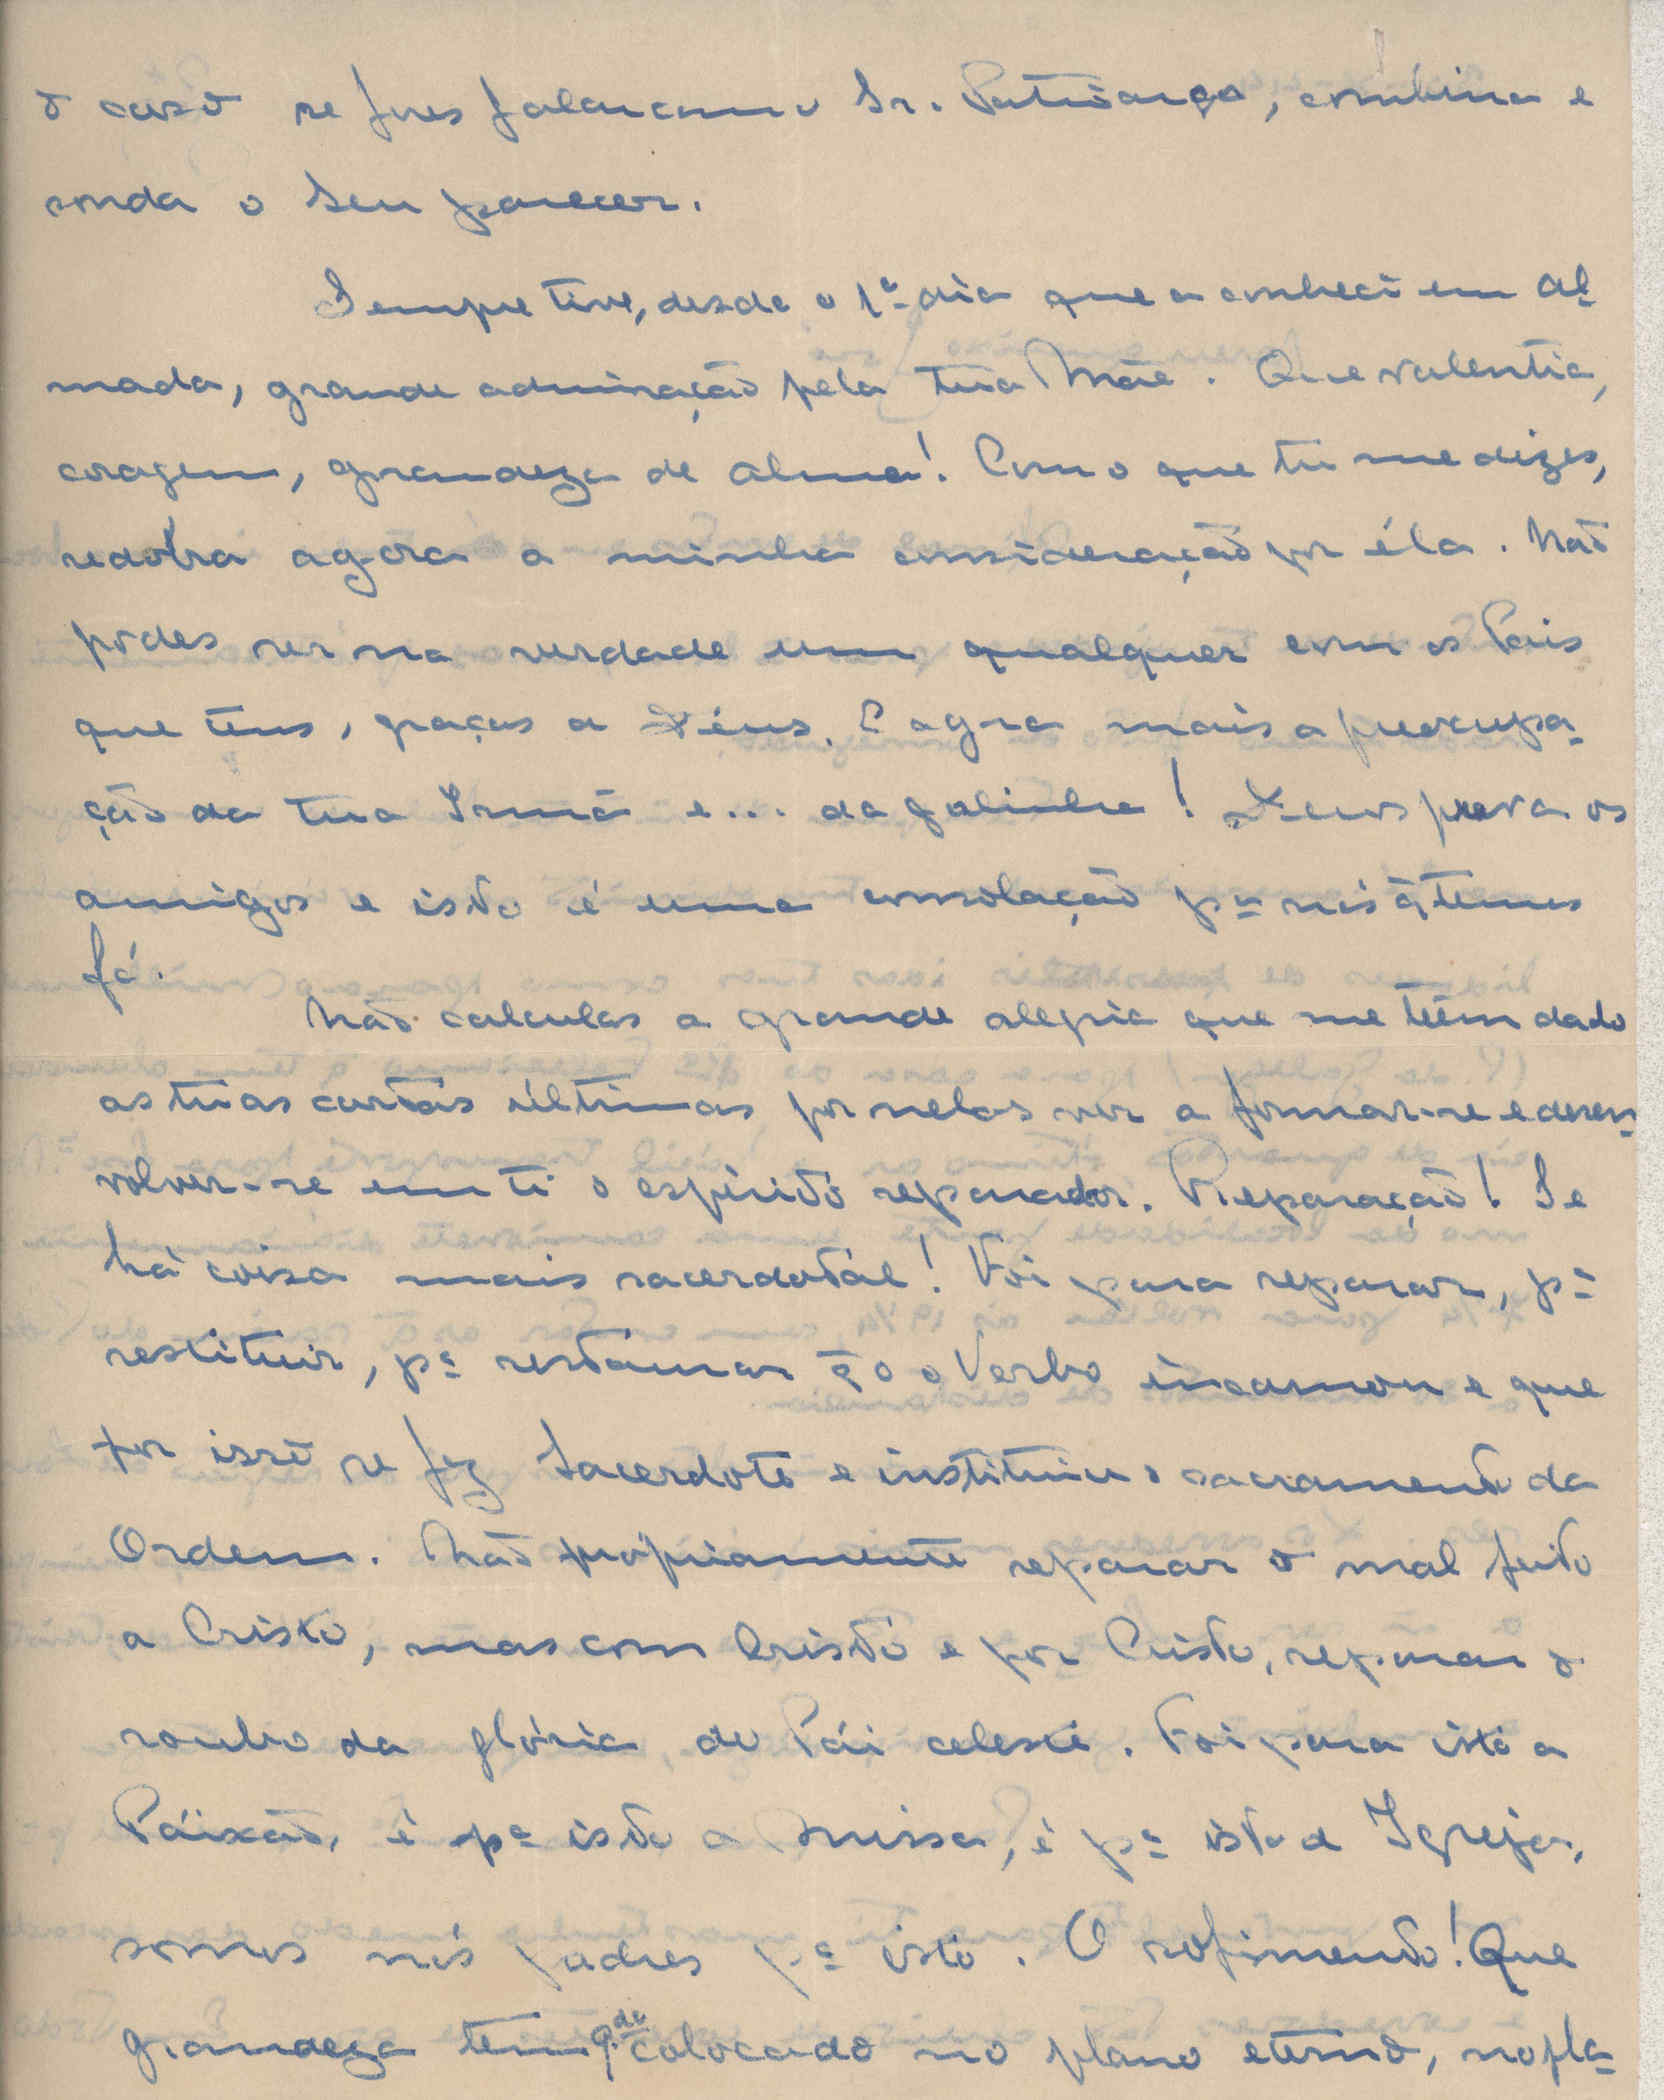 o caso se fores falar com o Sr. Patriarca, combina e
sonda o Seu parecer.
Sempre tive, desde o 1º dia que a conheci em Al-
mada, grande admiração pela tua Mãe. Que valentia,
coragem, grandeza de alma! Com o que tu me dizes,
redobra agora a minha consideração por éla. Não
podes ser na verdade um qualquer com os Pais
que tens, graças a Deus. E agora mais a preocupa-
ção da tua Irmã e... da galinha! Deus prova os
amigos e isto é uma consolação pª nós q̃ temos
fé.
Não calculas a grande alegria que me têem dado
as tuas cartas últimas por nelas ver a formar-se e desen-
volver-se em ti o espírito reparador. Reparação! Se
há coisa mais sacerdotal! Foi para reparar, pª
restituir, pª restaurar q̃ o o Verbo incarnou e que
por isso se fez Sacerdote e instituiu o sacramento da
Ordem. Não própriamente reparar o mal feito
a Cristo, mas com Cristo e por Cristo, reparar o
roubo da glória do Pái celeste. Foi para isto a
Páixão, é pª isto a Missa, é pª isto a Igreja,
somos nós padres pª isto. O sofrimento! Que
grandeza tem q.do colocado no plano eterno, no pla-